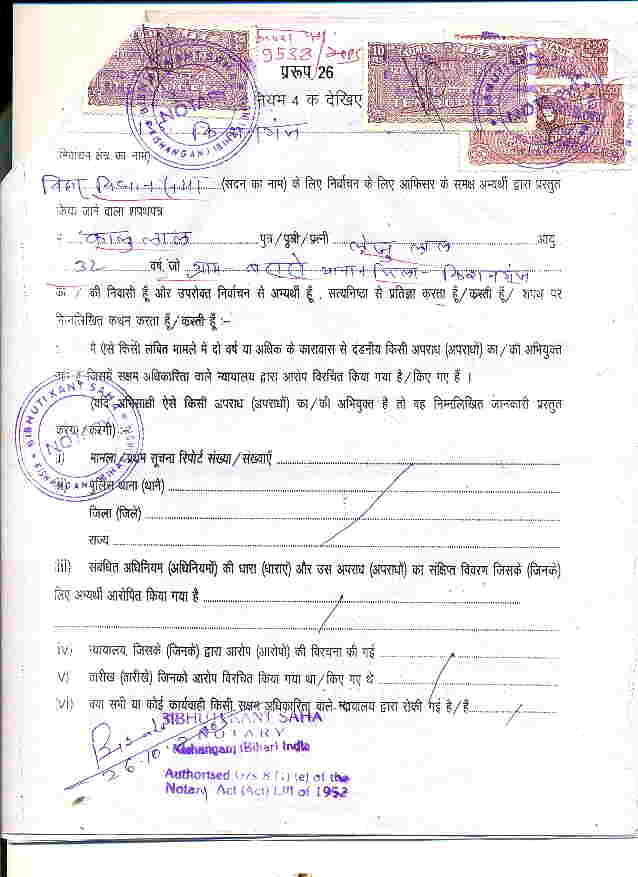 9538/2005
प्ररूप 26
नियम 4 क देखिए
निर्वाचन क्षेत्र का नाम)
(सदन का नाम) के लिए निर्वाचन के लिए आफिसर के समक्ष अभ्यर्थी द्वारा प्रस्तुत
किया जाने वाला शपथपत्र
कालु लाल पुत्र/पुत्री/पत्नी लेजु लाल आयु
32 वर्ष, जो ग्राम जिला- किशनगंज
का / की निवासी हूँ और उपरोक्त निर्वाचन से अभ्यर्थी हूँ , सत्यनिष्ठा से प्रतिज्ञा करता हूँ/करती हूँ/ शपथ पर
निम्नलिखित कथन करता हूँ/करती हूँ :-
मै ऐसे किसी लंबित मामले में दो वर्ष या अधिक के कारावास से दंडनीय किसी अपराध (अपराधों) का/की अभियुक्त
जिसमें सक्षम अधिकारिता वाले न्यायालय द्वारा आरोप विरचित किया गया है/किए गए हैं ।
(यदि अभिसाक्षी ऐसे किसी अपराध (अपराधों) का/की अभियुक्त है तो वह निम्नलिखित जानकारी प्रस्तुत
करेगा/करेगी) :-
i) मामला/प्रथम सूचना रिपोर्ट संख्या/संख्याएँ
पुलिस थाना (थाने)
जिला (जिले)
राज्य
iii) संबंधित अधिनियम (अधिनियमों) की धारा (धाराएं) और उस अपराध (अपराधों) का संक्षिप्त विवरण जिसके (जिनके)
लिए अभ्यर्थी आरोपित किया गया है
iv) न्यायालय, जिसके (जिनके) द्वारा आरोप (आरोपो) की विरचना की गई
v) तारीख (तारीखे) जिनको आरोप विरचित किया गया था/किए गए थे
vi) क्या सभी या कोई कार्यवाही किसी सक्षम अधिकारिता वाले न्यायालय द्वारा रोकी गई है/हैं
BIBHUTI KANT SAHA
NOTARY
Kishanganj (Bihar) India
Authorised U/s 8 (1) (e) of the
Notary Act (Act) LIII of 1952
BIBHUTI KANT SAHA
NOTARY
KISHANGANJ (BIHAR)